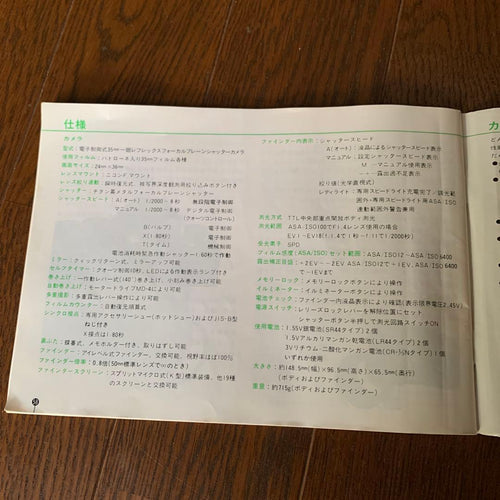 仕様
カメラ
型式：電子制御式35mm一眼レフレックスフォーカルプレーンシャッターカメラ
使用フィルム：パトローネ入り35mmフィルム各種
画面サイズ：24mm×36mm
レンズマウント：ニコンFマウント
レンズ絞り連動：瞬時復元式、被写界深度観測用絞り込みボタン付き
シャッター：チタン幕メタルフォーカルプレーンシャッター
シャッタースピード：A(オート) 1/2000〜8秒 無段階電子制御
マニュアル 1/2000〜8秒 デジタル電子制御
(クォーツコントロール)
B(バルブ) 電子制御
X(1/80秒) 電子制御
T(タイム) 機械制御
電池消耗時緊急作動シャッター：60秒で作動
ミラー：クィックリターン式、ミラーアップ可能
セルフタイマー：クオーツ制御10秒、LEDによる作動表示ランプ付き
巻き上げ：一作動レバー式(140°)巻き上げ、小刻み巻き上げ可能
自動巻き上げ：モータードライブMD-4により可能
多重撮影：多重露出レバー操作により可能
フィルムカウンター：自動復元順算式
シンクロ接点：専用アクセサリーシュー(ホットシュー)およびJIS-B型
ねじ付き
X接点は1/80秒
裏ぶた：蝶番式、メモホルダー付き、取りはずし可能
ファインダー：アイレベル式ファインダー、交換可能、視野率ほぼ100%
ファインダー倍率：0.8倍(50mm標準レンズで∞のとき)
ファインダースクリーン：スプリットマイクロ式(K型)標準装備、他19種
のスクリーンと交換可能
58
ファインダー内表示：シャッタースピード
A(オート)：液晶によるシャッタースピード表示
マニュアル：設定シャッタースピード表示
M －マニュアル使用表示
－＋－露出過不足表示
絞り値(光学直視式)
レディライト：専用スピードライト充電完了／調光範
囲外・専用スピードライト用ASA/ISO
連動範囲外警告兼用
測光方式 TTL中央部重点開放ボディ測光
ASA/ISO100でF1.4レンズ使用の場合
EV1〜EV18(f/1.4で1秒〜f/11で1/2000秒)
受光素子 SPD
フィルム感度：ASA/ISO：セット範囲：ASA/ISO12〜ASA/ISO6400
露出補正目盛：+2EV〜-2EV ASA/ISO12で-1EV、ASA/ISO6400
で+1EVまで
メモリーロック：メモリーロックボタンにより操作
イルミネーター：イルミネーターボタンにより操作
電池チェック：ファインダー内液晶表示により確認(表示限界電圧2.45V)
電源スイッチ：レリーズロックレバーを解除位置にセット
シャッターボタン半押しで測光回路スイッチON
使用電池：1.55V銀電池(SR44タイプ)2個
1.5Vアルカリマンガン乾電池(LR44タイプ)2個
3Vリチウム・二酸化マンガン電池(CR-1/3Nタイプ)1個
いずれか使用
大きさ：約148.5(幅)×96.5mm(高さ)×65.5mm(奥行)
(ボディおよびファインダー)
重量：約715g(ボディおよびファインダー)
カ